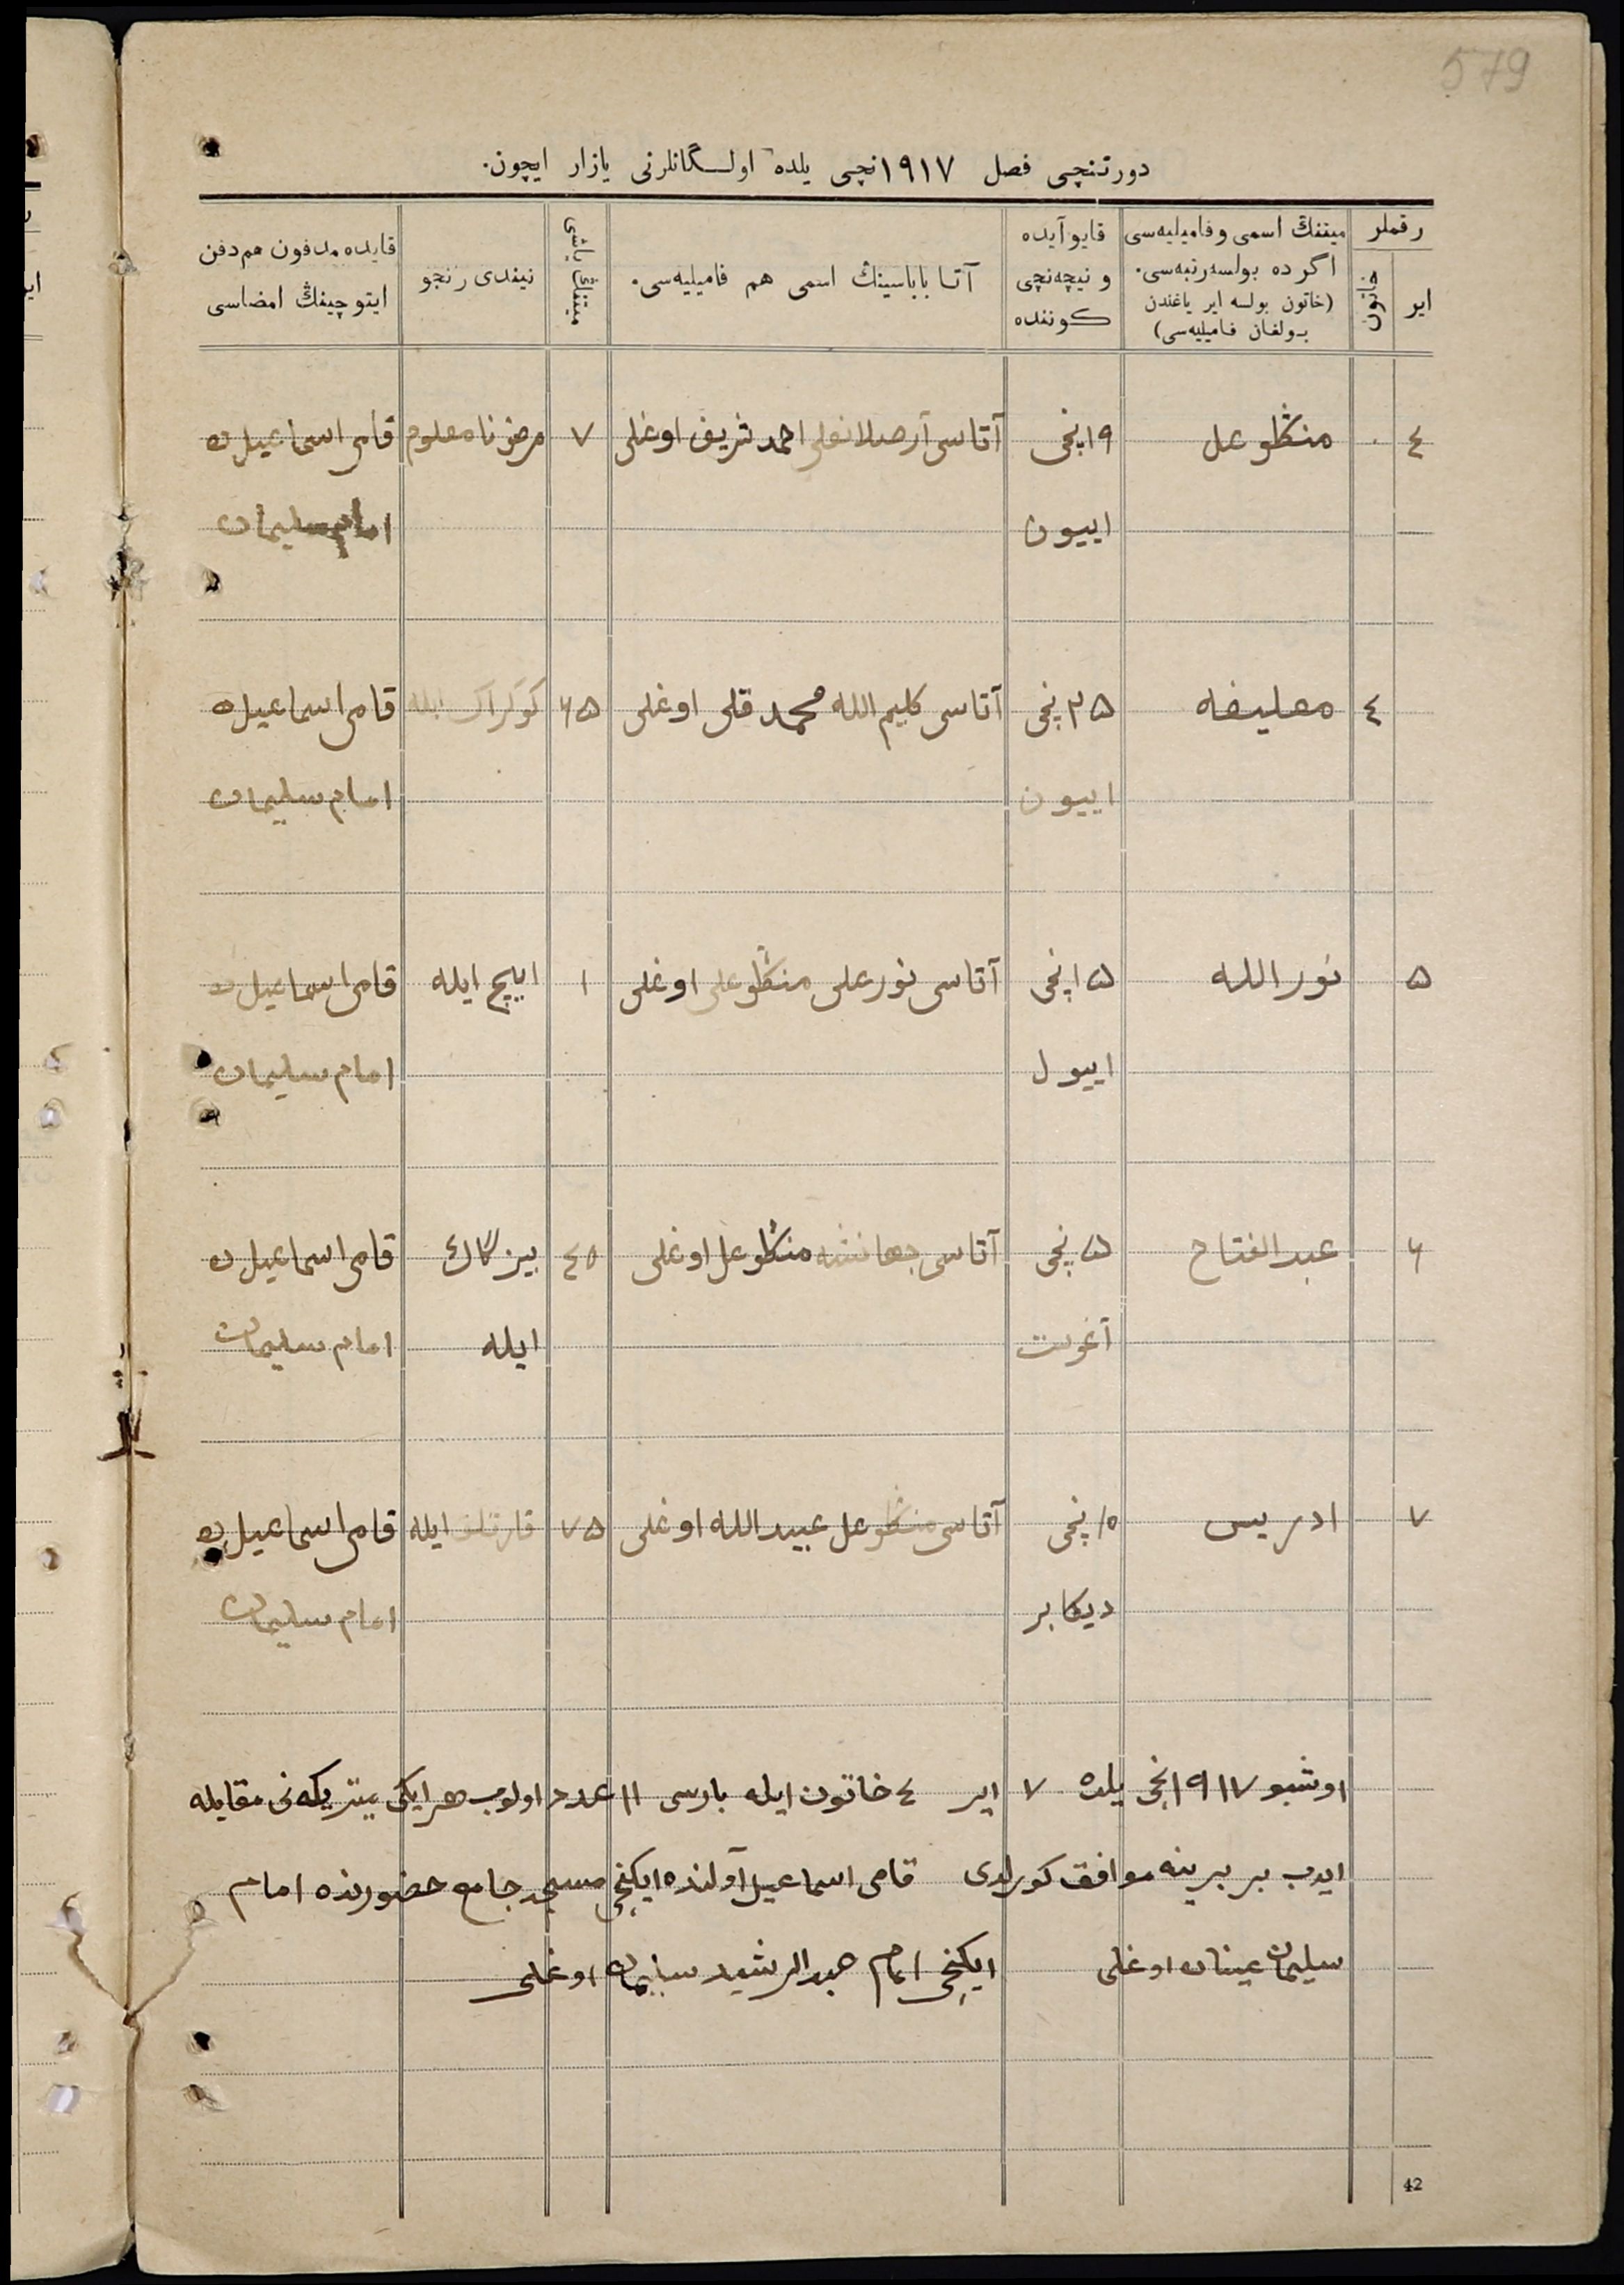 579
دورتنچی فصل ۱۹۱۷نچی یلده اولـگانلرنی یازار ایچون.
رقملر
ایر
خاتون
میتنڭ اسمی وفامیلیه‌سی
اگر ده بولسه رتبه‌سی.
(خاتون بولسه ایر یاغندن
بـولغان فامیلیه‌سی)
قایو آیده
و نیچه‌نچی
کوننده
آتـا باباسینڭ اسمی هم فامیلیه‌سی.
میتنڭ یاشی
نیندی رنجو
قایده مدفون هم دفن
ایتو چینڭ امضاسی
٤ منڭلوعلی ۱۹نچی آتاسی آرصلانعلی احمد شریف اوغلی ۷ مرض نامعلوم قامی اسماعیلده
اییون امام سلیمان
٤ معلیفه ۲۵نچی آتاسی کلیم الله محمد قلی اوغلی ۶۵ کوکراک ایله قامی اسماعیلده
اییون امام سلیمان
۵ نور الله ۱۵نچی آتاسی نورعلی منڭلوعلی اوغلی ۱ ایپچ ایله قامی اسماعیلده
اییول امام سلیمان
۶ عبد الفتاح ۵نچی آتاسی جهانشه منڭلوعلی اوغلی ٤۵ بیزگاک قامی اسماعیلده
آغوست ایله امام سلیمان
۷ ادریس ۱۵نچی آتاسی منڭلوعلی عبید الله اوغلی ۷۵ قارتلق ایله قامی اسماعیلده
دیکابر امام سلیمان
اوشبو ۱۹۱۷نچی یلده ۷ ایر ٤ خاتون ایله بارسی ۱۱ عدد اولوب هر ایکی میتریکه‌نی مقابله
ایدب بر برینه موافق کورلدی قامی اسماعیل آولنده ایکنچی مسجد جامع حضورنده امام
سلیمان عینان اوغلی ایکنچی امام عبد الرشید سلیمان اوغلی
42